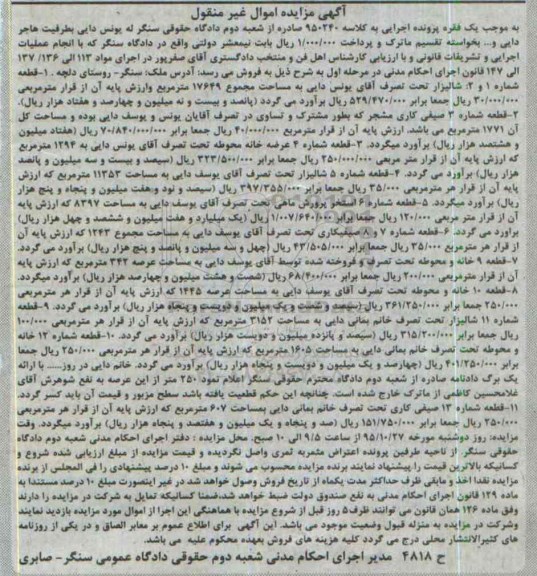 آگهی مزایده اموال غیر منقول
به موجب یک فقره پرونده اجرایی به کلاسه ۹۵۰۲۴۰ صادره از شعبه دوم دادگاه حقوقی سنگر له یونس دایی بطرفیت هاجر
دایی و... بخواسته تقسیم ماترک و پرداخت ۱/۰۰۰/۰۰۰ ریال بابت نیمعشر دولتی واقع در دادگاه سنگر که با انجام عملیات
اجرایی و تشریفات قانونی و با ارزیابی کارشناس اهل فن و منتخب دادگستری آقای صفرپور در اجرای مواد ۱۱۳ الی ۱۳۶/ ۱۳۷
الی ۱۴۷ قانون اجرای احکام مدنی در مرحله اول به شرح ذیل به فروش می رسد: آدرس ملک: سنگر- روستای دلچه . ۱-قطعه
شماره ۱ و ۲: شالیزار تحت تصرف آقای یونس دایی به مساحت مجموع ۱۷۶۴۹ مترمربع وارزش پایه آن از قرار مترمربعی
۳۰/۰۰۰ ریال جمعا برابر ۵۲۹/۴۷۰/۰۰۰ ریال برآورد می گردد (پانصد و بیست و نه میلیون و چهارصد و هفتاد هزار ریال).
۲-قطعه شماره ۳ صیفی کاری مشجر که بطور مشترک و تساوی در تصرف آقایان یونس و یوسف دایی بوده و مساحت کل
آن ۱۷۷۱ مترمربع می باشد. ارزش پایه آن از قرار مترمربع ۴۰/۰۰۰ ریال جمعا برابر ۷۰/۸۴۰/۰۰۰ ریال (هفتاد میلیون
و هشتصد هزار ریال) برآورد میگردد. ۳-قطعه شماره ۴ عرضه خانه محوطه تحت تصرف آقای یونس دایی به ۱۲۹۴ مترمربع
که ارزش پایه آن از قرار متر مربعی ۲۵۰/۰۰۰ ریال جمعا برابر ۳۲۳/۵۰۰/۰۰۰ ریال (سیصد و بیست و سه میلیون و پانصد
هزار ریال) برآورد می گردد. ۴-قطعه شماره ۵ شالیزار تحت تصرف آقای یوسف دایی به مساحت ۱۱۳۵۳ مترمربع که ارزش
پایه آن از قرار هر مترمربعی ۳۵/۰۰۰ ریال جمعا برابر ۳۹۷/۳۵۵/۰۰۰ ریال (سیصد و نود وهفت میلیون و پنجاه و پنج هزار
ریال) برآورد میگردد. ۵-قطعه شماره ۶ استخر پرورش ماهی تحت تصرف آقای یوسف دایی به مساحت ۸۳۹۷ که ارزش پایه
آن از قرار متر مربعی ۱۲۰/۰۰۰ ریال جمعا برابر ۱/۰۰۷/۶۴۰/۰۰۰ ریال (یک میلیارد و هفت میلیون و ششصد و چهل هزار ریال)
برآورد می گردد. ۶-قطعه شماره ۷ و ۸ صیفیکاری تحت تصرف آقای یوسف دایی به مساحت مجموع ۱۲۴۳ که ارزش پایه آن
از قرار هر مترمربع ۳۵/۰۰۰ ریال جمعا برابر ۴۳/۵۰۵/۰۰۰ ریال (چهل و سه میلیون و پانصد و پنج هزار ریال) برآورد می گردد.
۷-قطعه ۹ خانه و محوطه تحت تصرف و فروخته شده توسط آقای یوسف دایی به مساحت عرصه ۳۴۲ مترمربع که ارزش پایه
آن از قرار مترمربعی ۲۰۰/۰۰۰ ریال جمعا برابر ۶۸/۴۰۰/۰۰۰ ریال (شصت و هشت میلیون و چهارصد هزار ریال) برآورد میگردد.
۸-قطعه ۱۰ خانه و محوطه تحت تصرف آقای یوسف دایی به مساحت عرصه ۱۴۴۵ که ارزش پایه آن از قرار هر مترمربعی
۲۵۰/۰۰۰ ریال جمعا برابر ۳۶۱/۲۵۰/۰۰۰ ریال (سیصد و شصت و یک میلیون و دویست و پنجاه هزار ریال) برآورد می گردد. ۹-قطعه
شماره ۱۱ شالیزار تحت تصرف خانم بمانی دایی به مساحت ۳۱۵۲ مترمربع که ارزش پایه آن از قرار هر مترمربعی ۱۰۰/۰۰۰
ریال جمعا برابر ۳۱۵/۲۰۰/۰۰۰ ریال (سیصد و پانزده میلیون و دویست هزار ریال) برآورد می گردد. ۱۰-قطعه شماره ۱۲ خانه
و محوطه تحت تصرف خانم بمانی دایی به مساحت ۱۶۰۵ مترمربع که ارزش پایه آن از قرار هر مترمربعی ۲۵۰/۰۰۰ ریال جمعا
برابر ۴۰۱/۲۵۰/۰۰۰ ریال (چهارصد و یک میلیون و دویست و پنجاه هزار ریال) برآورد می گردد. خانم دایی در روز..... با ارائه
یک برگ دادنامه صادره از شعبه دوم دادگاه محترم حقوقی سنگر اعلام نمود ۲۵۰ متر از این عرصه به نفع شوهرش آقای
غلامحسین کاظمی از ماترک خارج شده است. چنانچه این حکم قطعیت یافته باشد سطح مزبور و قیمت آن باید کسر گردد.
۱۱-قطعه شماره ۱۳ صیفی کاری تحت تصرف خانم بمانی دایی بمساحت ۶۰۷ مترمربع که ارزش پایه آن از قرار هر مترمربعی
۲۵۰/۰۰۰ ریال جمعا برابر ۱۵۱/۷۵۰/۰۰۰ ریال (صد و پنجاه و یک میلیون و هفتصد و پنجاه هزار ریال) برآورد میگردد. وقت
مزایده: روز دوشنبه مورخه ۹۵/۱۰/۲۷ از ساعت ۹/۵ الی ۱۰ صبح. محل مزایده : دفتر اجرای احکام مدنی شعبه دوم دادگاه
حقوقی سنگر. از ناحیه طرفین پرونده اعتراض مثمربه ثمری واصل نگردیده و قیمت مزایده از مبلغ ارزیابی شده شروع و
کسانیکه بالاترین قیمت را پیشنهاد نمایند برنده مزایده محسوب می شوند و مبلغ ۱۰ درصد پیشنهادی را فی المجلس از برنده
مزایده نقدا اخذ و مابقی ظرف حداکثر مدت یکماه از تاریخ فروش وصول خواهد شد در غیر اینصورت مبلغ ۱۰ درصد مستندا به
ماده ۱۲۹ قانون اجرای احکام مدنی به نفع صندوق دولت ضبط خواهد شد.ضمنا کسانیکه تمایل به شرکت در مزایده را دارند
وفق ماده ۱۲۶ همان قانون می توانند ظرف ۵ روز قبل از شروع مزایده با هماهنگی این اجرا از اموال مورد مزایده بازدید نمایند
وشرکت در مزایده به منزله قبول وضعیت موجود می باشد. این آگهی برای اطلاع عموم بر معابر الصاق و در یکی از روزنامه
های کثیرالانتشار محلی درج می گردد کلیه هزینه های فروش بعهده محکوم علیه می باشد.
ح ۴۸۱۸ مدیر اجرای احکام مدنی شعبه دوم حقوقی دادگاه عمومی سنگر- صابری